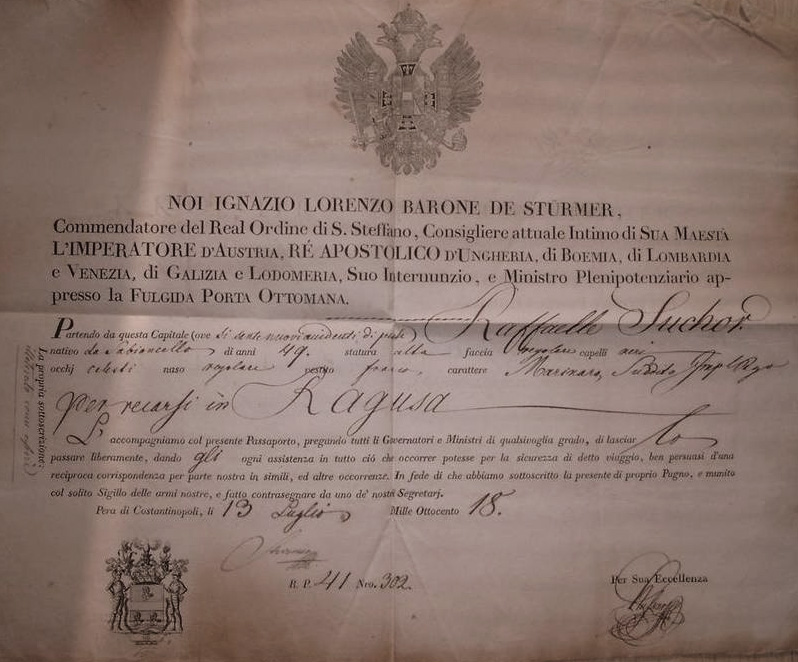 NOI IGNAZIO LORENZO BARONE DE STÜRMER,
Commendatore del Real Ordine di S. Steffano, Consigliere attuale Intimo di SUA MAESTÀ
L'IMPERATORE D'AUSTRIA, RÉ APOSTOLICO D'UNGHERIA, di BOEMIA, di LOMBARDIA
e VENEZIA, di GALIZIA e LODOMERIA, Suo Internunzio, e Ministro Plenipotenziario ap-
presso la FULGIDA PORTA OTTOMANA.
Partendo da questa Capitale (ove si sente nuovi accidenti di peste) Raffaelle Suchor
nativo da Sabioncello di anni 49. statura alta faccia regolare capelli neri
occhj celesti naso regolare vestito franco, carattere Marinaro, Suddito Impl Rgo
per recarsi in Ragusa
L' accompagniamo col presente Passaporto, pregando tutti li Guvernatori e Ministri di qualsivoglia grado, di lasciar lo
passare liberamente, dando gli ogni assistenza in tutto ciò che occorrer potesse per la sicurezza di detto viaggio, ben persuasi d'una
reciproca corrispondenza per parte nostra in simili, ed altre occorrenze. In fede di che abbiamo sottoscritto la presente di proprio Pugno, e munito
col solito Sigillo delle armi nostre, e fatto contrasegnare da uno de' nostri Segretarj.
Pera di Costantinopoli, li 13 Luglio Mille Ottocento 18.
R. P. 41 Nro. 302.
Per Sua Eccellenza
La propria sottoscrizione: